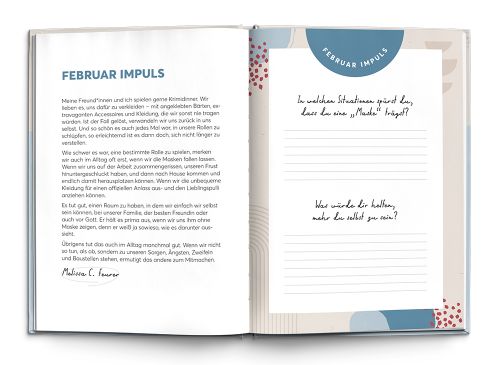 FEBRUAR IMPULS
Meine Freund*innen und ich spielen gerne Krimidinner. Wir
lieben es, uns dafür zu verkleiden – mit angeklebten Bärten, ex-
travaganten Accessoires und Kleidung, die wir sonst nie tragen
würden. Ist der Fall gelöst, verwandeln wir uns zurück in uns
selbst. Und so schön es auch jedes Mal war, in unsere Rollen zu
schlüpfen, so erleichternd ist es dann doch, sich nicht länger zu
verstellen.
Wie schwer es war, eine bestimmte Rolle zu spielen, merken
wir auch im Alltag oft erst, wenn wir die Masken fallen lassen.
Wenn wir uns auf der Arbeit zusammengerissen, unseren Frust
hinuntergeschluckt haben, und dann nach Hause kommen und
endlich damit herausplatzen können. Wenn wir die unbequeme
Kleidung für einen offiziellen Anlass aus- und den Lieblingspulli
anziehen können.
Es tut gut, einen Raum zu haben, in dem wir einfach wir selbst
sein können, bei unserer Familie, der besten Freundin oder
auch vor Gott. Er hält es prima aus, wenn wir uns ihm ohne
Maske zeigen, denn er weiß ja sowieso, wie es darunter aus-
sieht.
Übrigens tut das auch im Alltag manchmal gut. Wenn wir nicht
so tun, als ob, sondern zu unseren Sorgen, Ängsten, Zweifeln
und Baustellen stehen, ermutigt das andere zum Mitmachen.
Melissa C. Feurer
FEBRUAR IMPULS
In welchen Situationen spürst du,
dass du eine „Maske" trägst?
Was würde dir helfen,
mehr du selbst zu sein?